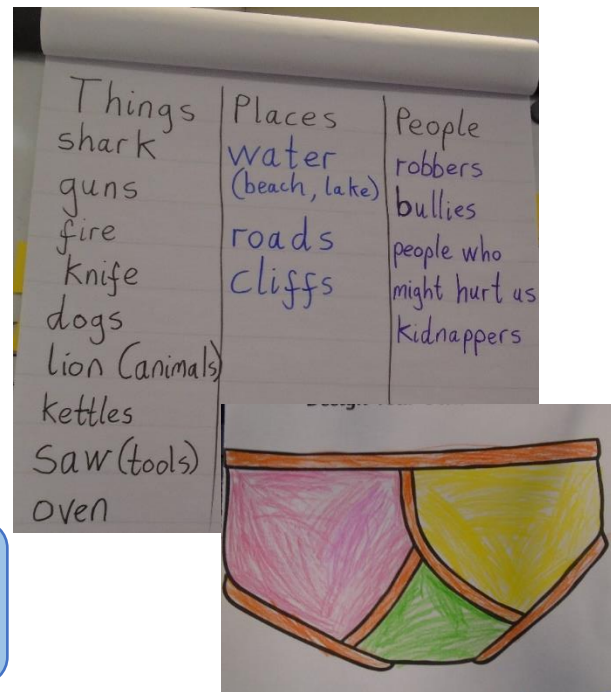 Things
shark
guns
fire
knife
dogs
lion (animals)
kettles
saw (tools)
oven
Places
water
(beach, lake)
roads
cliffs
People
robbers
bullies
people who
might hurt us
kidnappers